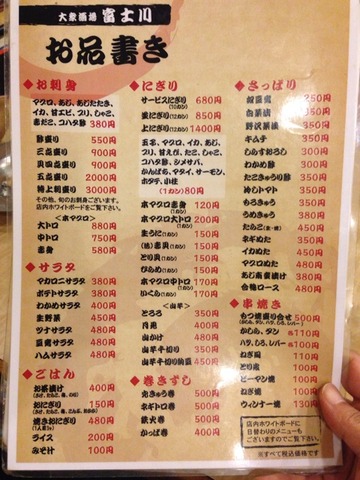 大衆酒場 富士川
お品書き
◆お刺身
マグロ、あじ、あじたたき、
イカ、甘エビ、ブリ、しゃこ、
赤だこ、コハダ酢 380円
酢盛り 550円
三点盛り 900円
貝四点盛り 900円
五点盛り 2000円
特上刺盛り 3000円
その他、旬のお刺身ございます。
店内ホワイトボードをご覧下さい。
<本マグロ>
大トロ 880円
中トロ 750円
赤身 580円
◆サラダ
マカロニサラダ 480円
ポテトサラダ 380円
わかめサラダ 400円
生野菜 450円
ツナサラダ 480円
豆腐サラダ 480円
ハムサラダ 480円
◆ごはん
お茶漬け 400円
おにぎり 150円
焼きおにぎり 480円
ライス 200円
みそ汁 100円
◆にぎり
サービスにぎり(10カン) 680円
並にぎり(10カン) 850円
上にぎり(12カン) 1400円
玉子、マグロ、イカ、あじ、
ブリ、甘えび、たこ、しゃこ、
コハダ酢、シメサバ、
かんぱち、マダイ、サーモン、
ホタテ、小柱
(1カン)80円
本マグロ赤身(1カン) 120円
本マグロ大トロ(1カン) 200円
まうに(1カン) 150円
とり貝(1カン) 150円
ひらめ(1カン) 150円
本マグロ中トロ(1カン) 170円
いくら(1カン) 150円
<山芋>
とろろ 350円
月見 400円
山かけ 480円
山芋千切り 350円
山芋千切り納豆 450円
◆巻きずし
鉄火巻 500円
かっぱ巻 400円
◆さっぱり
白菜漬 350円
野沢菜漬 350円
キムチ 350円
しらすおろし 300円
わかめ酢 300円
たこきゅうり酢 350円
冷しトマト 350円
もろきゅう 350円
うめきゅう 380円
ネギぬた 350円
イカぬた 450円
マグロぬた 480円
あじ南蛮漬け 380円
◆串焼き
もつ焼盛り合せ 500円
かしら、タン 各110円
ハツ、しろ、レバー 各100円
ねぎ間 110円
とり皮 100円
ピーマン焼 100円
ねぎ焼 100円
ウィンナー焼 130円
店内ホワイトボードに
日替わりのメニューも
ございますのでご覧下さい。
※すべて税込価格です。